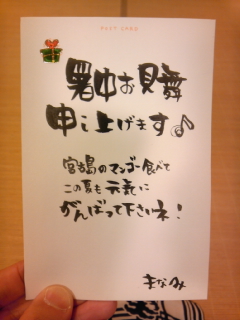 暑中お見舞
申し上げます♪
宮古島のマンゴー食べて
この夏も元気に
がんばって下さいネ!
まなみ